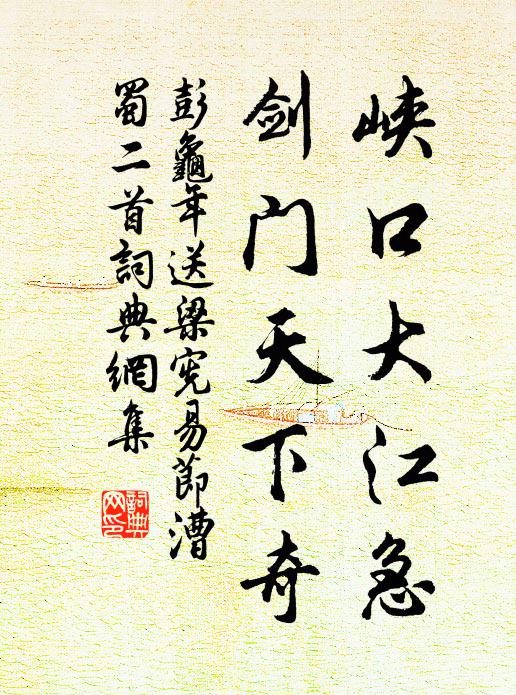 峡口大江急
剑门天下奇
彭龜年送梁宪易節漕
蜀二首詞典網集
詞典
网印